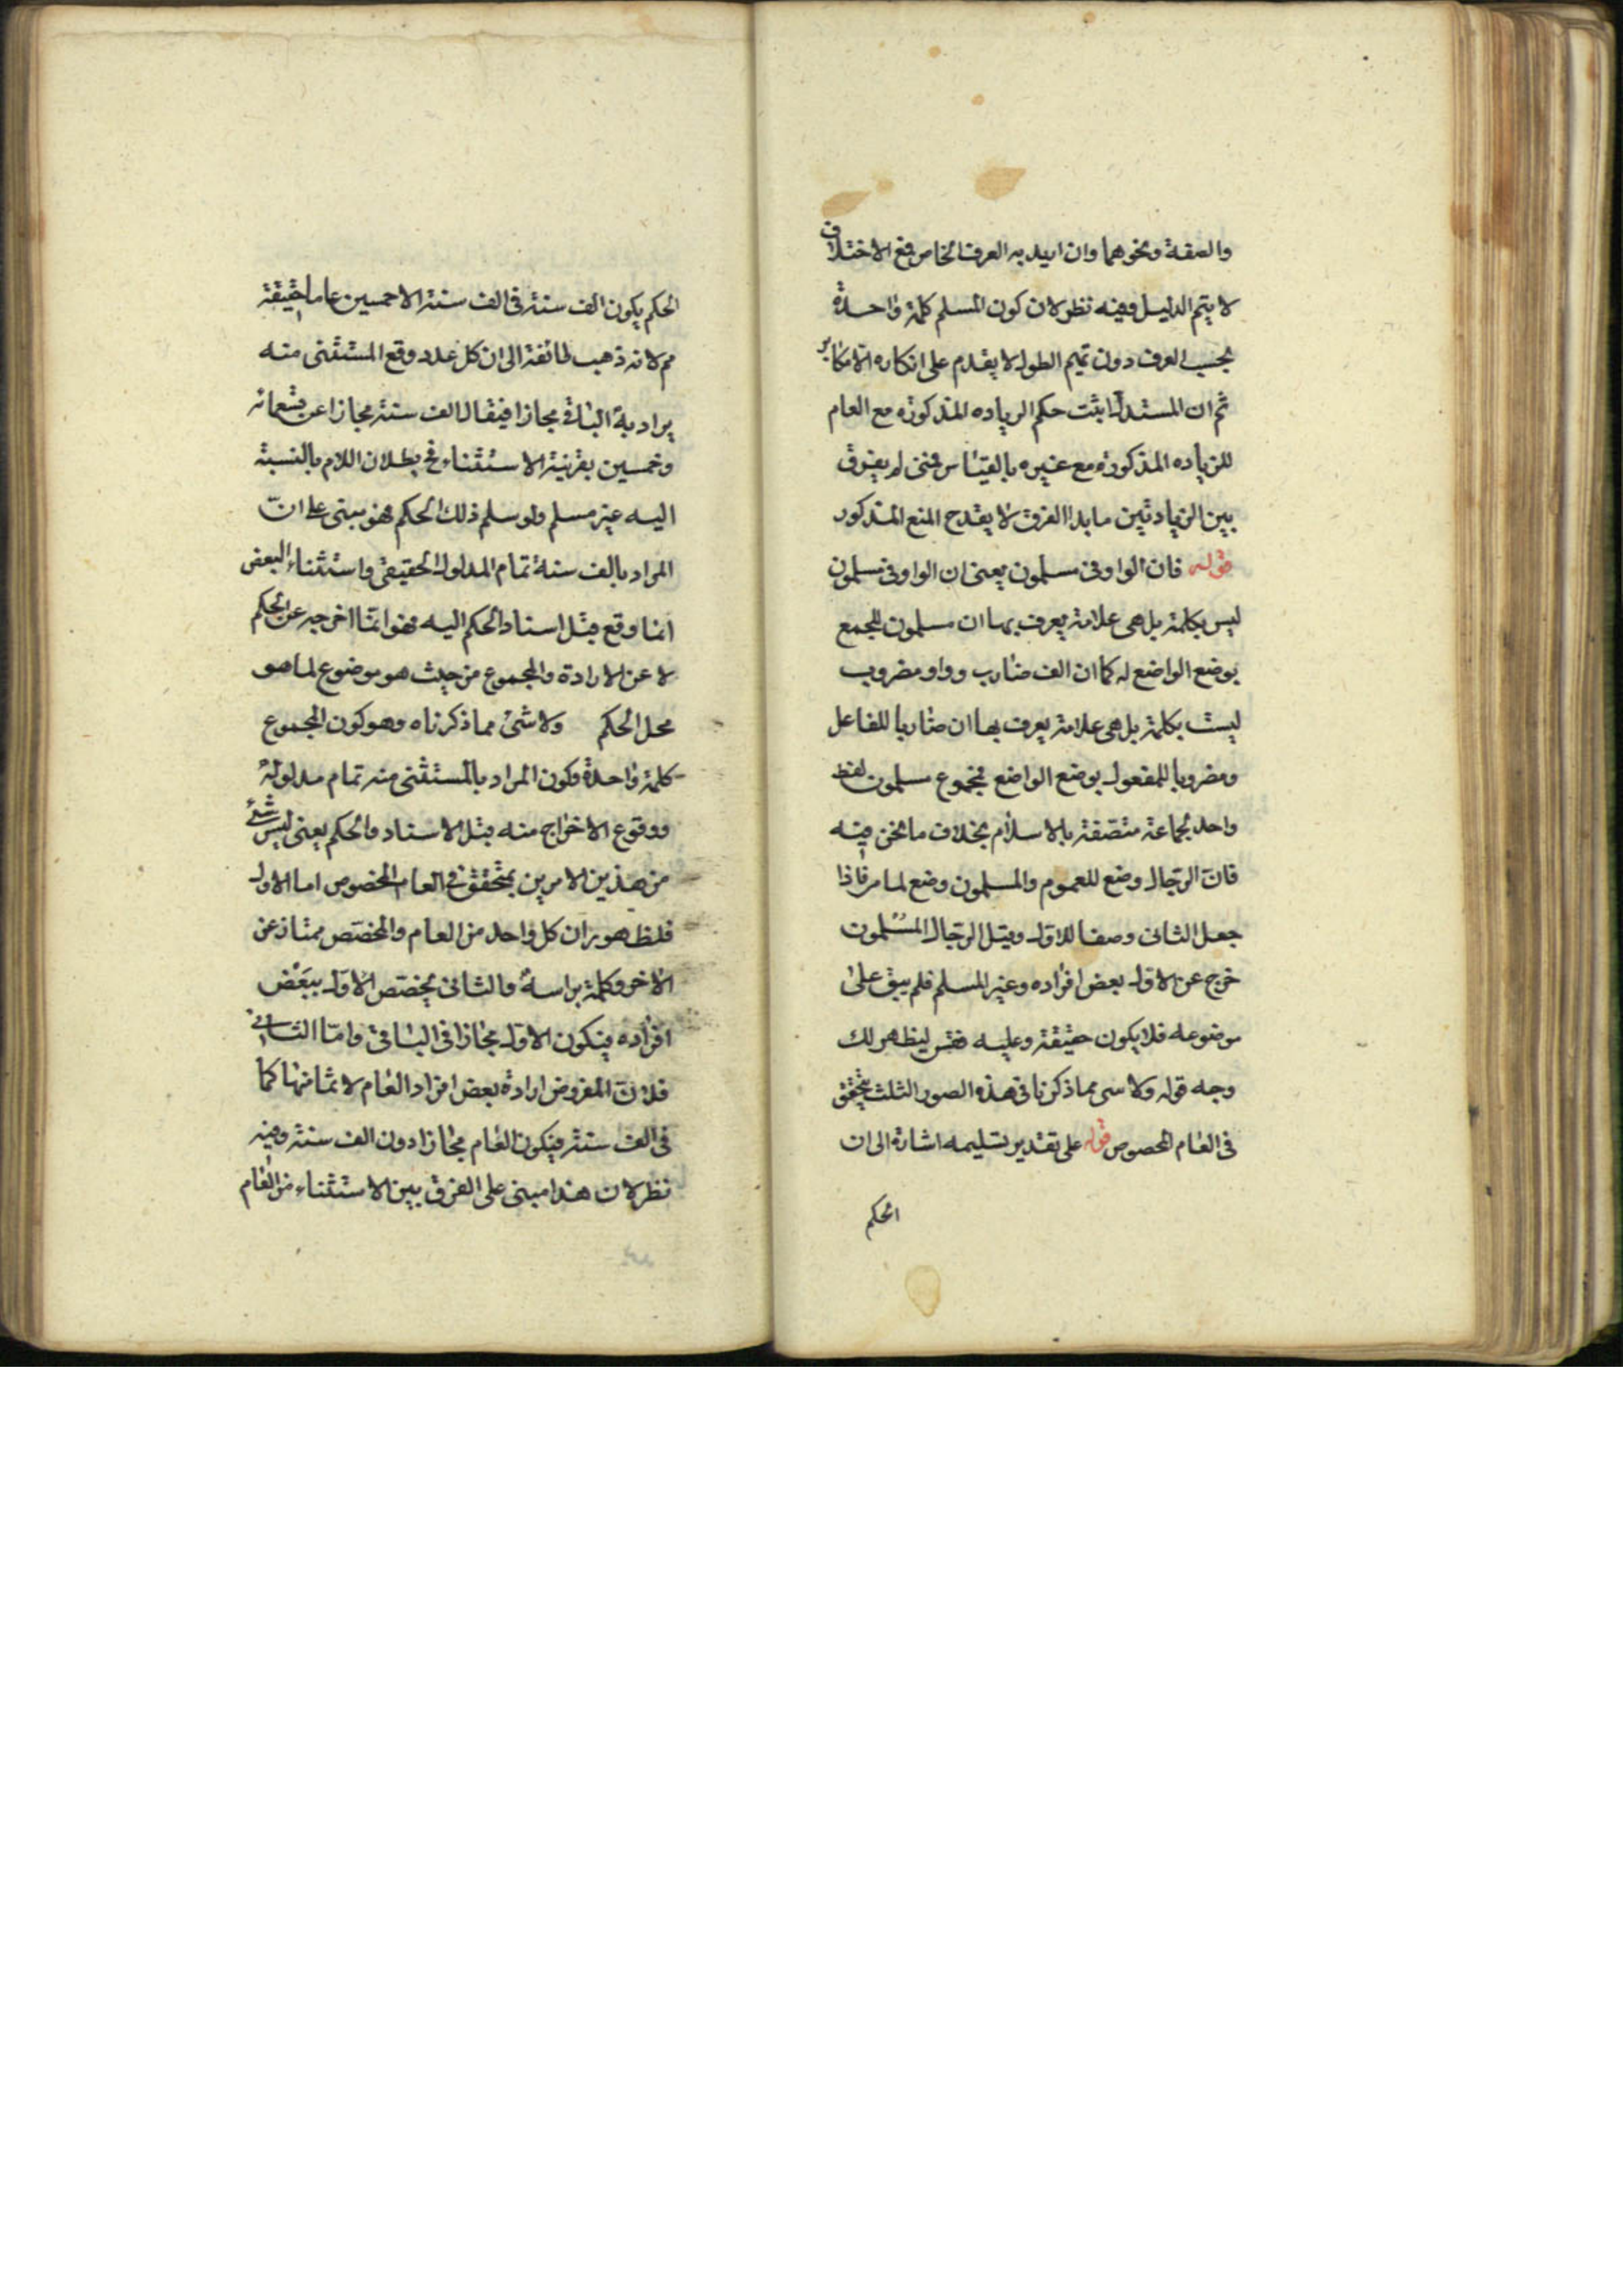 والصفة ونحوهما وان اريد به العرف الخاص فمع الاختلاف
لا يتم الدليل وفيه نظر لان كون المسلم كلمة واحدة
بحسب العرف دون تميم الطول لا يقدم على انكاره الا مكابر
ثم ان المستدل اثبت حكم الزياده المذكوره مع العام
للزياده المذكورة مع غيره بالقياس فمنى لم يفرق
بين الزيادتين ما بدا الفرق لا يقدح المنع المذكور
قوله فان الواو فى مسلمون يعنى ان الواو فى مسلمون
ليس بكلمة بل هى علامة يعرف بها ان مسلمون للجمع
بوضع الواضع له كما ان الف ضارب وواو مضروب
ليست بكلمة بل هى علامة يعرف بها ان ضاربا للفاعل
ومضروبا للمفعول بوضع الواضع فمجموع مسلمون لفظ
واحد لجماعة متصفة بالاسلام بخلاف ما نحن فيه
فان الرجال وضع للعموم والمسلمون وضع لما مر فاذا
جعل الثانى وصفا للاول وقيل الرجال المسلمون
خرج عن الاول بعض افراده وغير المسلم فلم يبق على
موضوعه فلا يكون حقيقة وعليه فقس ليظهر لك
وجه قوله ولا سى مما ذكرنا فى هذه الصور الثلث بتحقق
فى العام المخصوص قوله على تقدير تسليمه اشارة الى ان
الحكم
الحكم يكون الف سنة فى الف سنة الا خمسين عاما حقيقة
مم لانه ذهب طائفة الى ان كل عدد وقع المستثنى منه
يراد به الباقى مجازا فيقال الف سنة مجازا عن تسعمائه
وخمسين بقرينة الاستثناء فح بطلان اللام بالنسبة
اليه غير مسلم ولو سلم ذلك الحكم فهو مبنى على ان
المراد بالف سنة تمام المدلول الحقيقى واستثناء البعض
انما وقع قبل اسناد الحكم اليه فهو انما اخرجه عن الحكم
لا عن الارادة والمجموع من حيث هو موضوع لما هو
محل الحكم ولا شئ مما ذكرناه وهو كون المجموع
كلمة واحدة وكون المراد بالمستثنى منه تمام مدلوله
ووقوع الاخراج منه قبل الاسناد والحكم يعنى ليس شئ
من هذين الامرين بمتحقق فى العام المخصوص اما الاول
فلظهور ان كل واحد من العام والمخصص ممتاز عن
الاخر وكلمة براسه والثانى يخصص الاول ببعض
افراده فيكون الاول مجازا فى الباقى واما الثانى
فلان المفروض ارادة بعض افراد العام لا تمامها كما
فى الف سنة فيكون العام مجازا دون الف سنة وفيه
نظر لان هذا مبنى على الفرق بين الاستثناء من العام